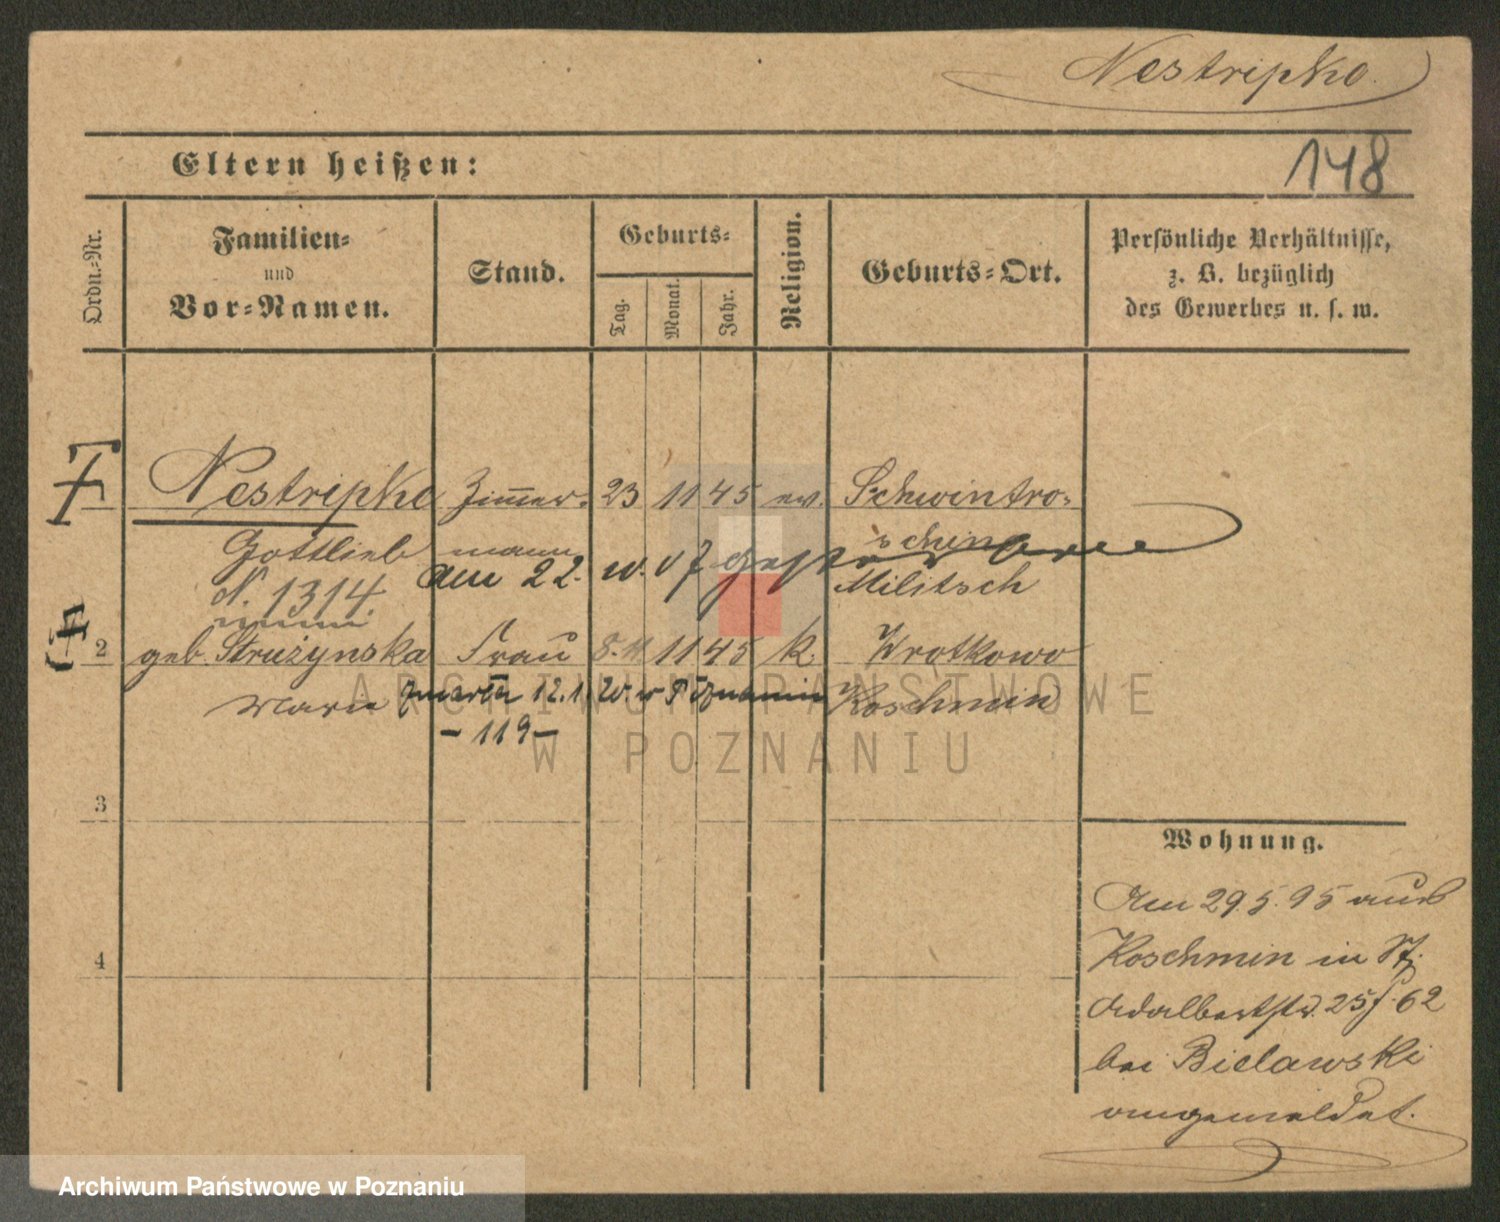 Nestripke.
148
Eltern heißen:
Ordn.-Nr.
Familien-
und
Vor-Namen.
Stand.
Geburts-
Tag.
Monat.
Jahr.
Religion.
Geburts-Ort.
Persönliche Verhältnisse,
z. B. bezüglich
des Gewerbes u. s. w.
Nestripke Zimmer- 23 11 45 ev. Schwintro-
Gottlieb mann schin
am 22. gestorben
N. 1314. Militsch
2 geb. Strużynska Frau 8. 11 45 k. Wrotkowo
Marie zmarła 12.1. w Poznaniu Koschmin
- 119 -
3
4
Wohnung.
Am 29.5.95 aus
Koschmin in St.
Adalbertstr. 25/ 62
bei Bielawski
angemeldet.
ARCHIWUM PAŃSTWOWE
W POZNANIU
Archiwum Państwowe w Poznaniu